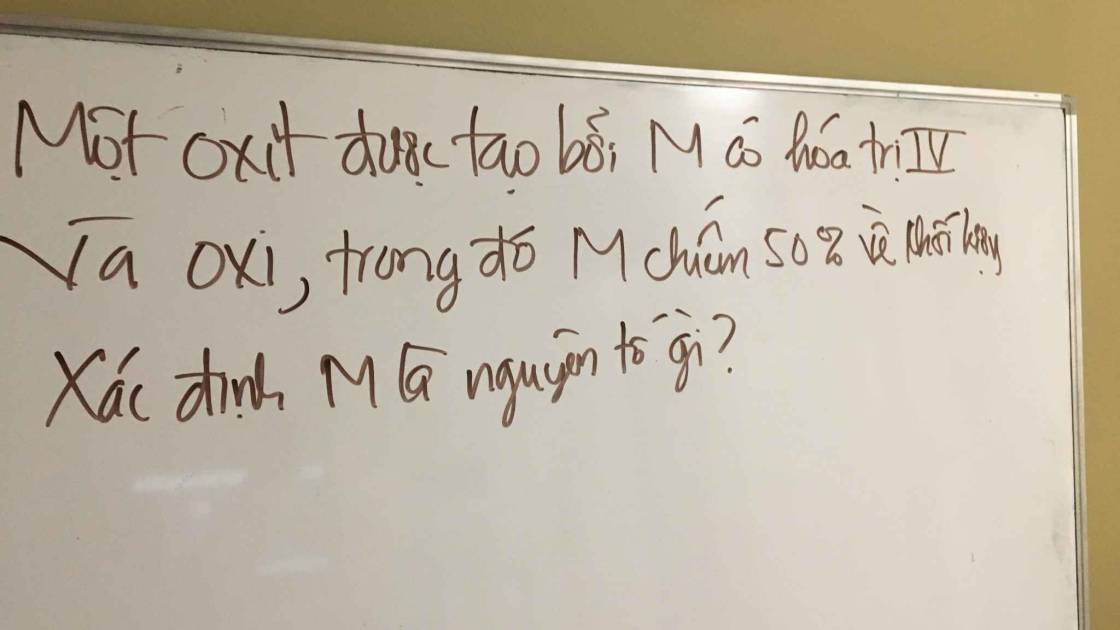 Một oxit được tạo bởi M có hóa trị IV
Và oxi, trong đó M chiếm 50% về khối lượng
Xác định M là nguyên tố gì?